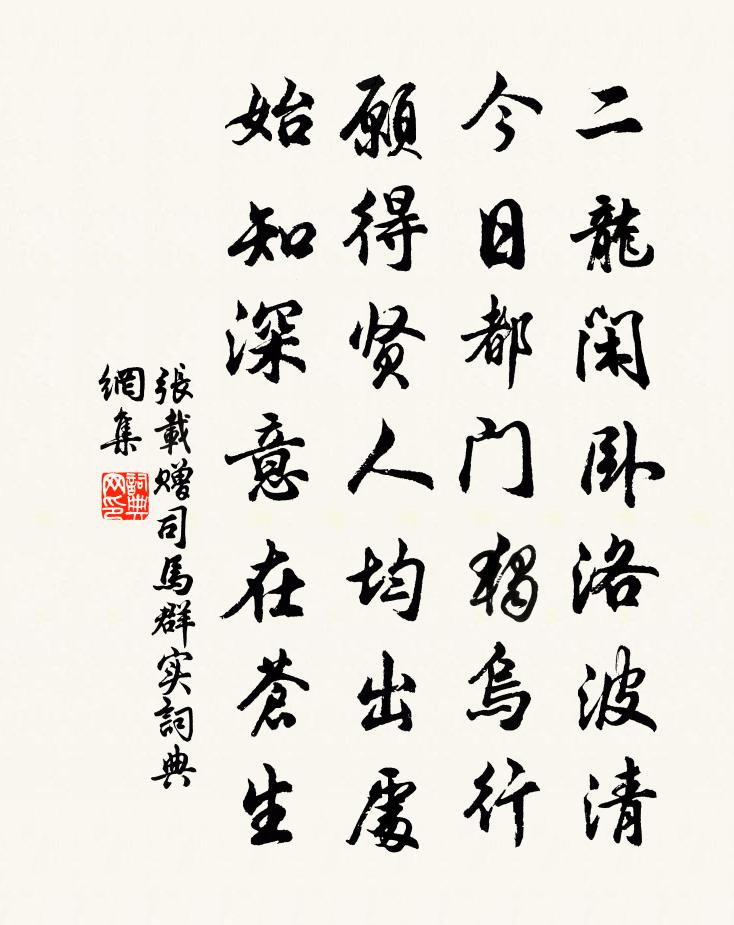 二龍閑卧洛波清
今日都门獨烏行
願得贤人均出處
始知深意在蒼生
張載赠司馬群实詞典
網集
詞典
网印